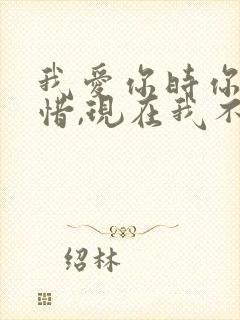 我愛你時你
惜,現在我不
绍林